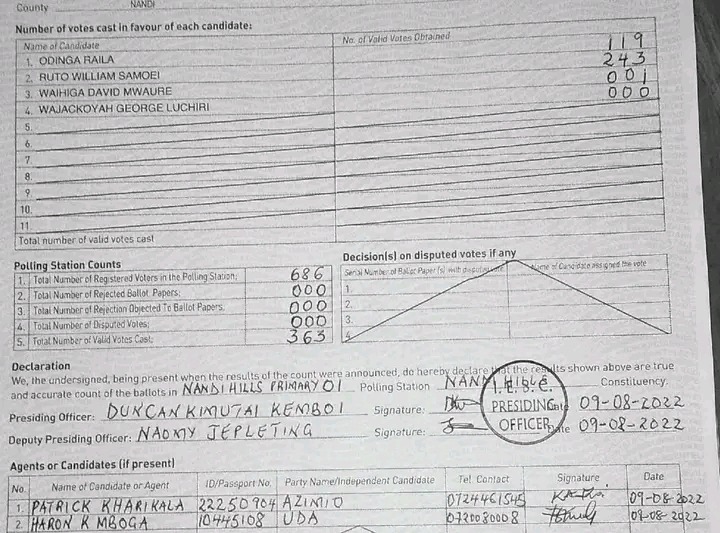 County NANDI
Number of votes cast in favour of each candidate:
Name of Candidate No. of Valid Votes Obtained
1. ODINGA RAILA 119
2. RUTO WILLIAM SAMOEI 243
3. WAIHIGA DAVID MWAURE 001
4. WAJACKOYAH GEORGE LUCHIRI 000
5.
6.
7.
8.
9.
10.
11.
Total number of valid votes cast
Polling Station Counts
1. Total Number of Registered Voters in the Polling Station: 686
2. Total Number of Rejected Ballot Papers: 000
3. Total Number of Rejection Objected To Ballot Papers: 000
4. Total Number of Disputed Votes: 000
5. Total Number of Valid Votes Cast: 363
Decision(s) on disputed votes if any
Serial Number of Ballot Paper(s) with disputed vote Name of Candidate assigned the vote
1.
2.
3.
4.
Declaration
We, the undersigned, being present when the results of the count were announced, do hereby declare that the results shown above are true
and accurate count of the ballots in NANDI HILLS PRIMARY 01 Polling Station NANDI Constituency.
I.E.B.C.
PRESIDING
OFFICER
Presiding Officer: DUNCAN KIMUTAI KEMBOI Signature: Date 09-08-2022
Deputy Presiding Officer: NAOMY JEPLETING Signature: Date 09-08-2022
Agents or Candidates (if present)
No. Name of Candidate or Agent ID/Passport No. Party Name/Independent Candidate Tel. Contact Signature Date
1. PATRICK KHARIKALA 22250904 AZIMIO 0724461545 09-08-2022
2. HARON K MBOGA 10445108 UDA 0720080008 09-08-2022